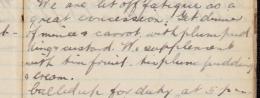 We are let off fatigue as a
great concession. Get dinner
6 - of mince & carrot, with plum pud
ding & custard. We supplement
with tin fruit - tin plum pudding
& cream.
Called up for duty at 5 p.m.